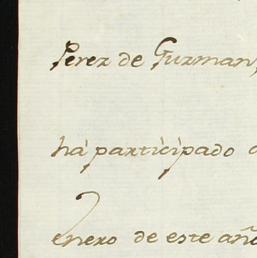 Perez de Guzman,
ha participado
enero de este año